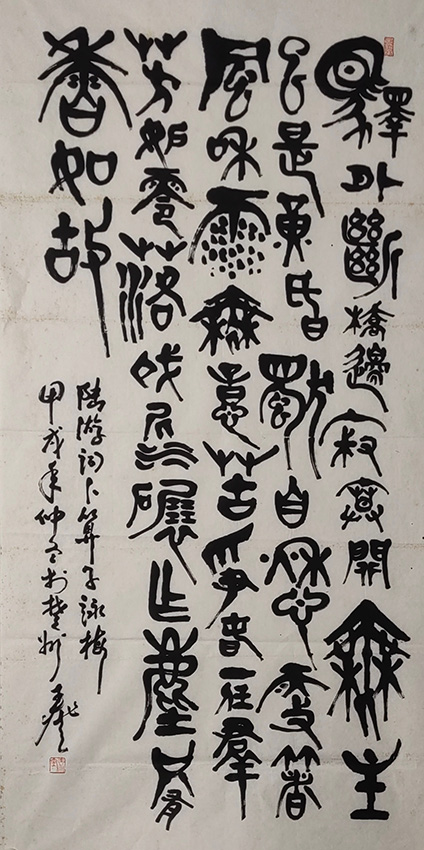 驛外斷橋邊寂寞開無主
已是黃昏獨自愁更著
風和雨無意苦爭春一任羣
芳妒零落成泥碾作塵只有
香如故
陸游詞卜算子詠梅
甲戌年仲冬於楚州